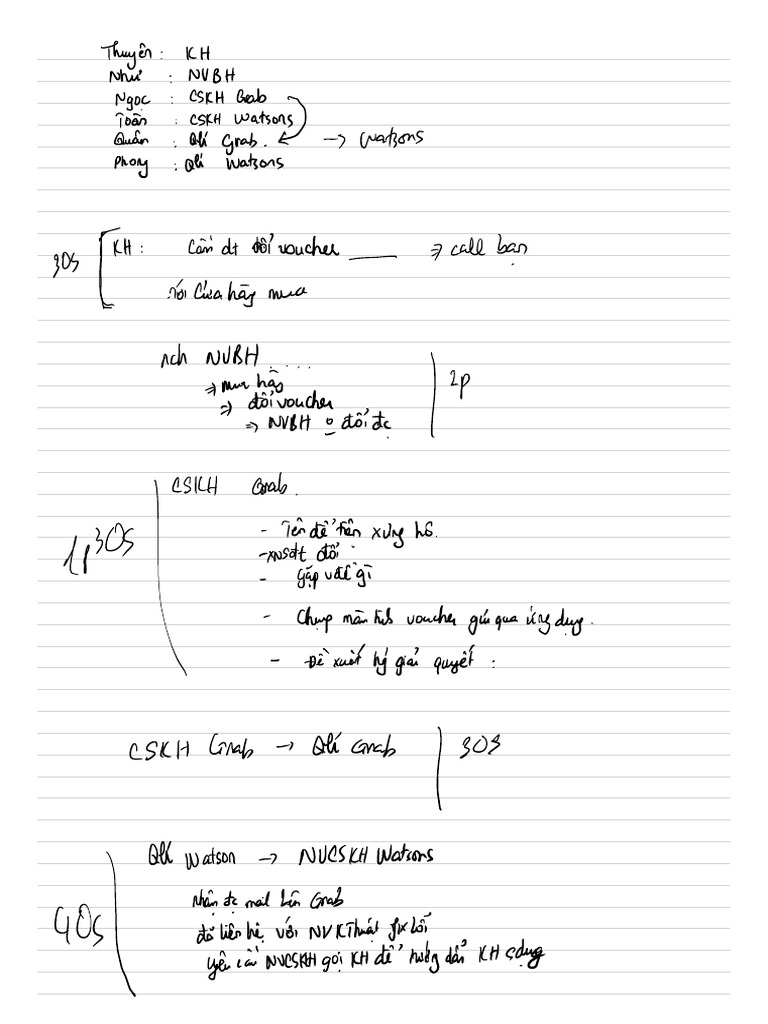 Thuyên : KH
Như : NVBH
Ngọc : CSKH Grab
Toàn : CSKH Watsons
Quân : Qlí Grab. → Watsons
Phong : Qlí Watsons
30s
KH : Cần đt đổi voucher ____ ⇒ call bạn
tới cửa hàng mua
NVBH ....
⇒ mua hàg
⇒ đổi voucher
⇒ NVBH o đổi đc
2p
CSKH Grab.
1p30s
- Tên để tiện xưng hô.
- xN sđt đổi
- Gặp vđề gì
- Chụp màn hình voucher gửi qua ứng dụng.
- Đề xuất hướng giải quyết :
CSKH Grab → Qlí Grab 30s
Qlí Watson → NVCSKH Watsons
40s
Nhận đc mail bên Grab
đã liên hệ với NV Kthuật fix lỗi
yêu cầu NVCSKH gọi KH để hướng dẫn KH sdụng